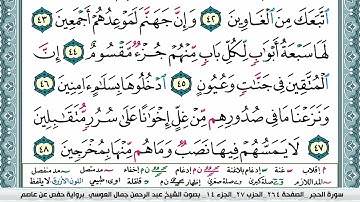 ٱتَّبَعَكَ مِنَ ٱلْغَاوِينَ ٤٢ وَإِنَّ جَهَنَّمَ لَمَوْعِدُهُمْ أَجْمَعِينَ ٤٣
لَهَا سَبْعَةُ أَبْوَٰبٍ لِّكُلِّ بَابٍ مِّنْهُمْ جُزْءٌ مَّقْسُومٌ ٤٤ إِنَّ
ٱلْمُتَّقِينَ فِى جَنَّٰتٍ وَعُيُونٍ ٤٥ ٱدْخُلُوهَا بِسَلَٰمٍ ءَامِنِينَ ٤٦
وَنَزَعْنَا مَا فِى صُدُورِهِم مِّنْ غِلٍّ إِخْوَٰنًا عَلَىٰ سُرُرٍ مُّتَقَٰبِلِينَ
٤٧ لَا يَمَسُّهُمْ فِيهَا نَصَبٌ وَمَا هُم مِّنْهَا بِمُخْرَجِينَ ٤٨
سورة الحجر - الصفحة ٢٦٤ - الجزء ١٤ بصوت الشيخ عبد الرحمن جمال العوسي - رواية حفص عن عاصم